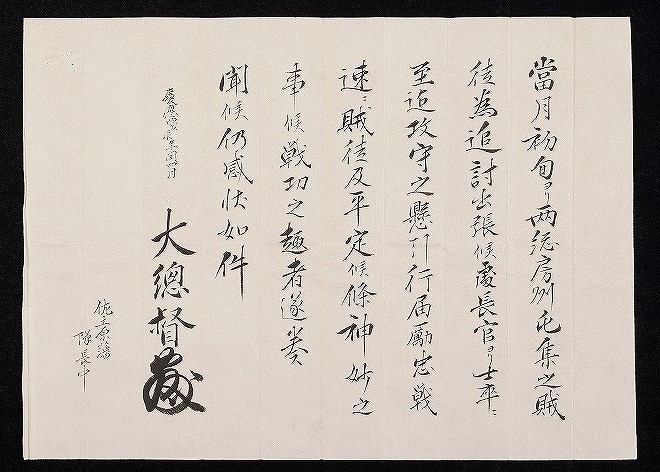 當月初旬ゟ両総房州屯集之賊
徒為追討出張候處長官ゟ士卒ニ
至迄攻守之懸引行届勵忠戦
速ニ賊徒及平定候條神妙之
事候戦功之趣者遂奏
聞候仍感状如件
慶應四年閏四月
大總督
佐土原藩
隊長中